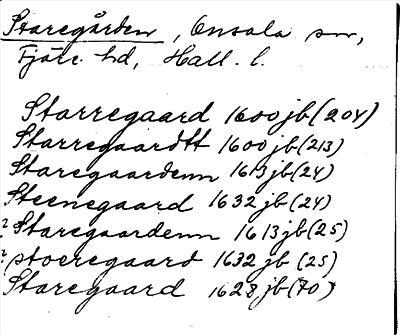 Staregården, Onsala sn,
Fjäre hd, Hall. l.
Starregaard 1600 jb (204)
Starregaardtt 1600 jb (213)
Staregaardenn 1613 jb (24)
Steenegaard 1632 jb (24)
? Staregaardenn 1613 jb (25)
? Stoeregaard 1632 jb (25)
Staregaard 1628 jb (70)